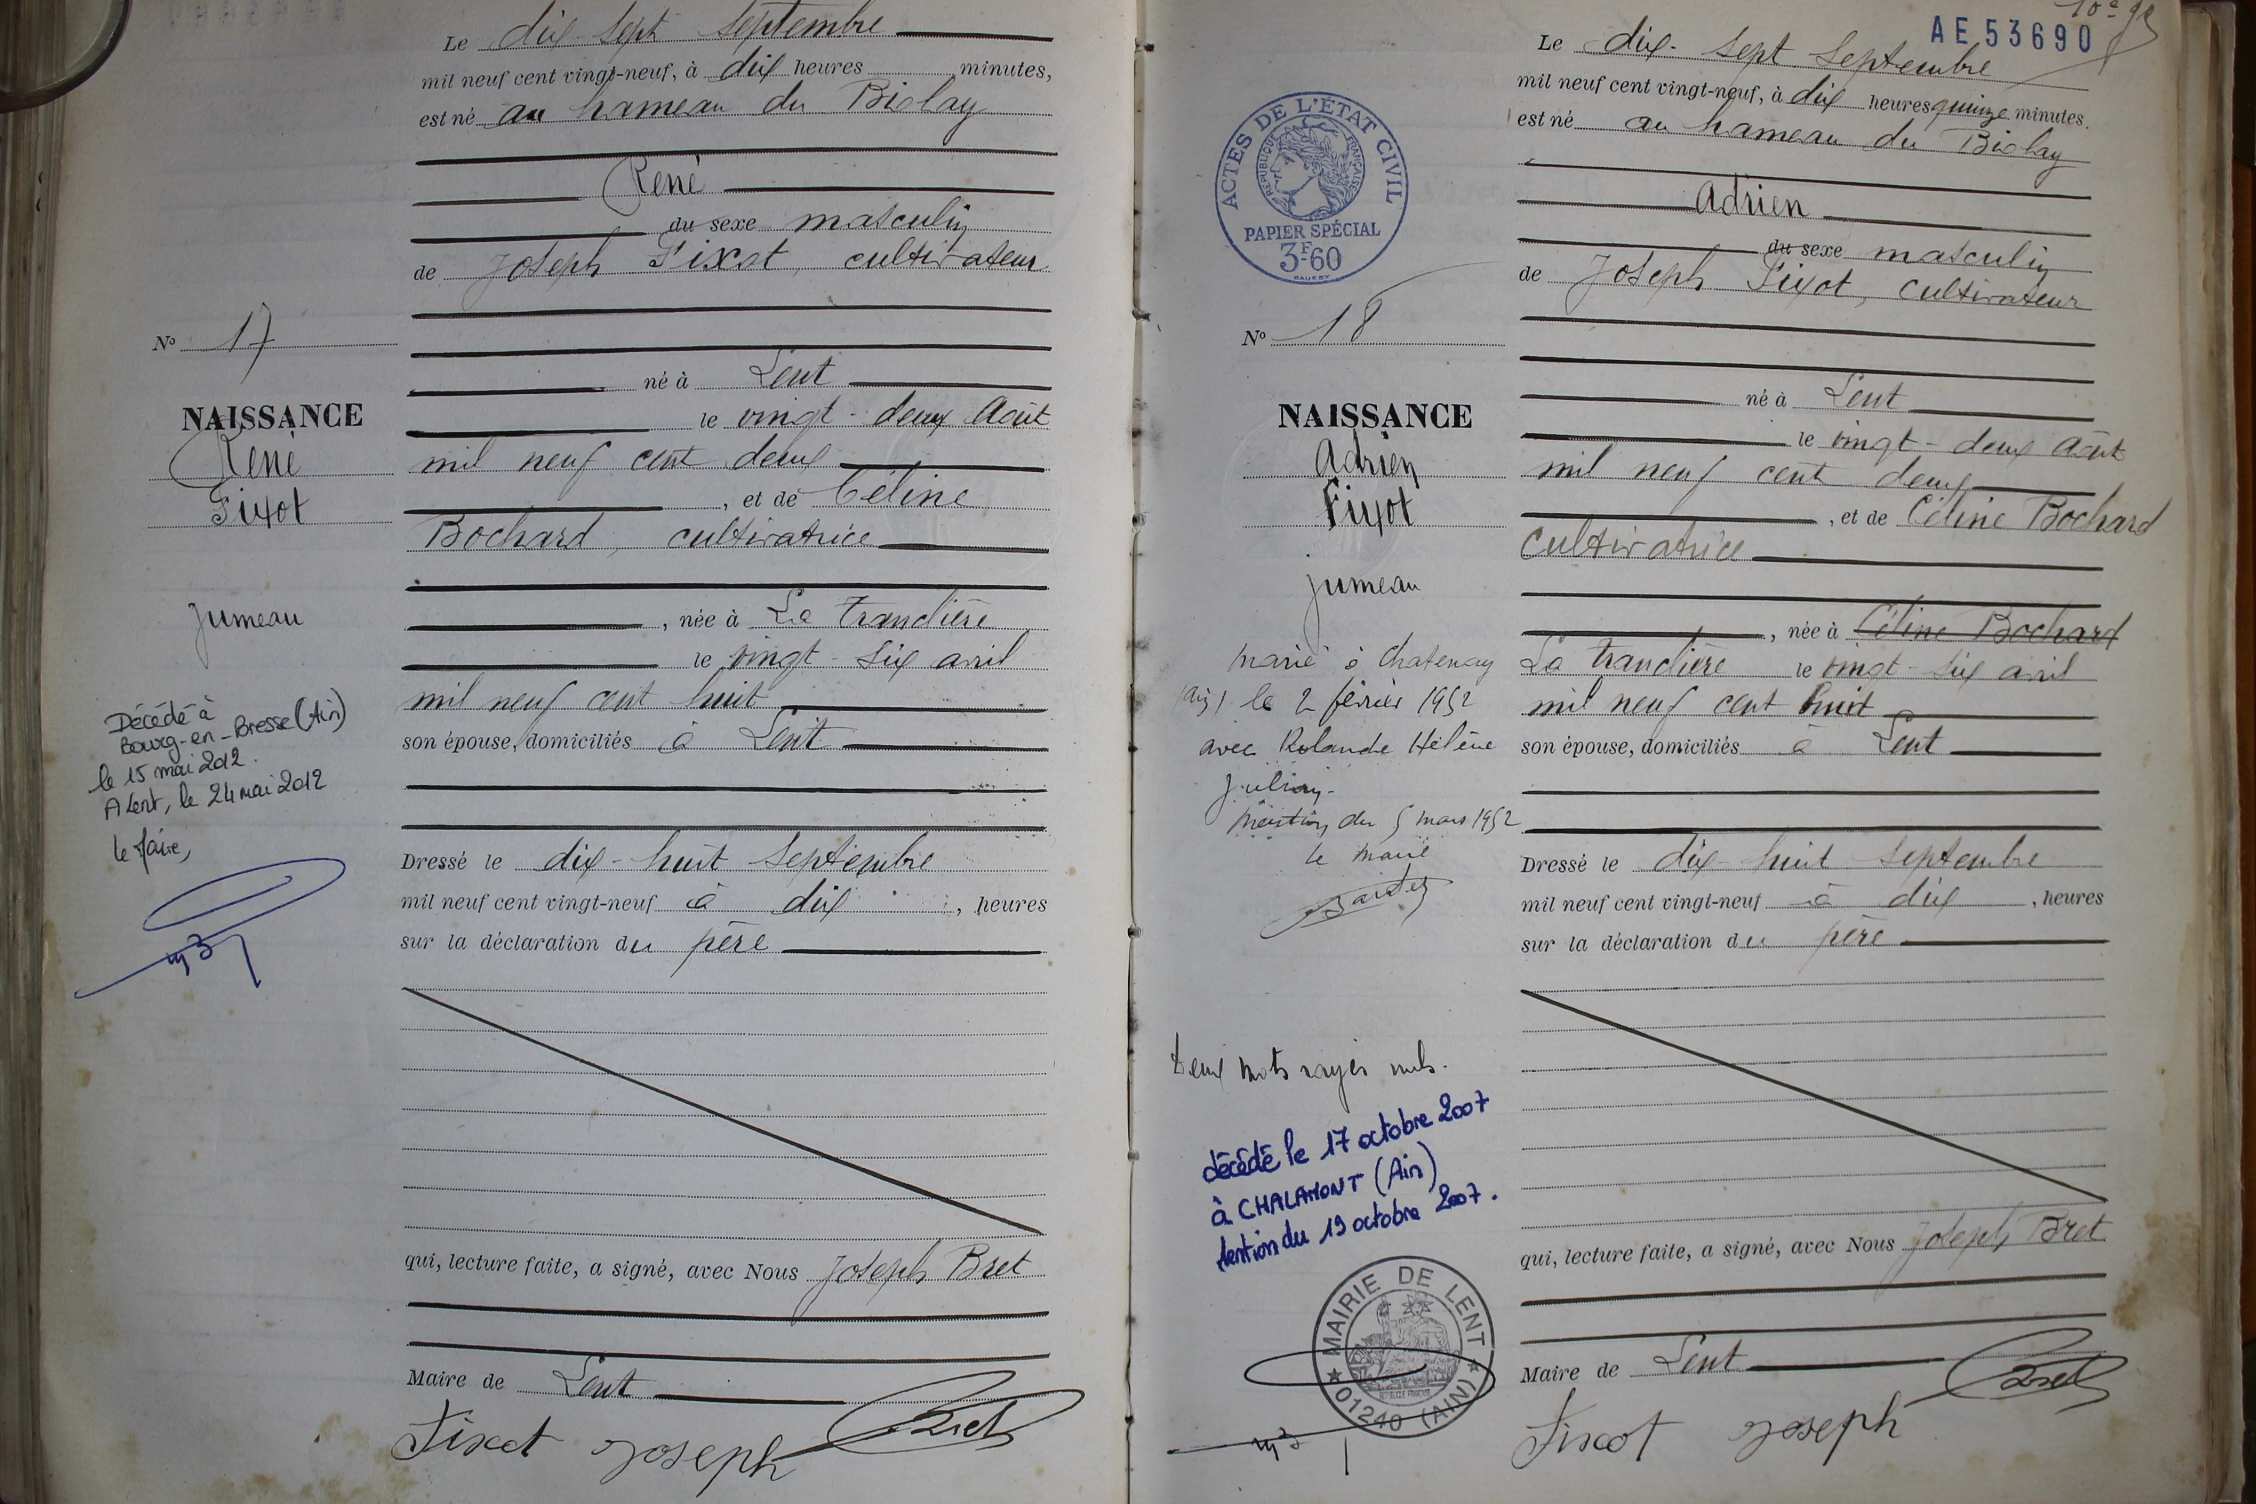 Le dix-sept septembre
mil neuf cent vingt-neuf, à dix heures minutes,
est né au hameau du Biolay
René
du sexe masculin
de Joseph Fixot, cultivateur
né à Lent
le vingt-deux Août
mil neuf cent deux
, et de Céline
Bochard, cultivatrice
, née à La Tranclière
le vingt-six avril
mil neuf cent huit
son épouse, domiciliés à Lent
Dressé le dix-huit Septembre
mil neuf cent vingt-neuf à dix, heures
sur la déclaration du père
qui, lecture faite, a signé, avec Nous Joseph Bret
Maire de Lent
Fixot Joseph Bret
No 17
NAISSANCE
René
Fixot
Jumeau
Décédé à
Bourg-en-Bresse (Ain)
le 15 mai 2012.
A Lent, le 24 mai 2012
le Maire,
AE53690
Le dix-sept Septembre
mil neuf cent vingt-neuf, à dix heures quinze minutes.
est né au hameau du Biolay
Adrien
du sexe masculin
de Joseph Fixot, cultivateur
né à Lent
le vingt-deux Août
mil neuf cent deux
, et de Céline Bochard
cultivatrice
, née à Céline Bochard
La Tranclière le vingt-six avril
mil neuf cent huit
son épouse, domiciliés à Lent
Dressé le dix-huit Septembre
mil neuf cent vingt-neuf à dix, heures
sur la déclaration du père
qui, lecture faite, a signé, avec Nous Joseph Bret
Maire de Lent
Bret
Fixot Joseph
ACTES DE L'ÉTAT CIVIL
RÉPUBLIQUE FRANÇAISE
PAPIER SPÉCIAL
3F60
No 18
NAISSANCE
Adrien
Fixot
jumeau
marié à Chatenay
(Ain) le 2 février 1952
avec Rolande Hélène
Jullian
Mention du 5 mars 1952
le maire
Deux mots rayés nuls.
décédé le 17 octobre 2007
à CHALAMONT (Ain)
Mention du 19 octobre 2007.
MAIRIE DE LENT
01240 (AIN)